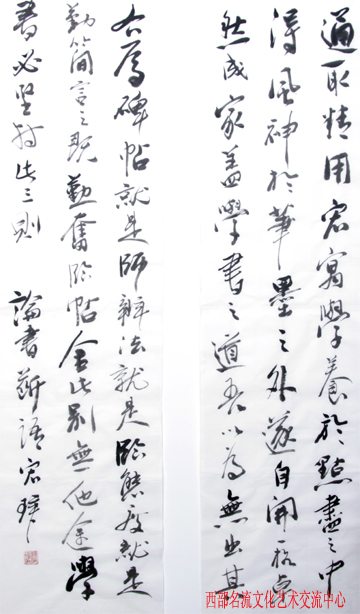 通取精用宏寓學養於點畫之中
得風神於筆墨之外遂自開一格卓
然成家蓋學書之道吾以為無出其
右焉碑帖就是師辦法就是臨態度就是
勤簡言之既勤奮臨帖舍此別無他途學
書必堅持此三則 論書斷語宏
西部名流文化艺术交流中心